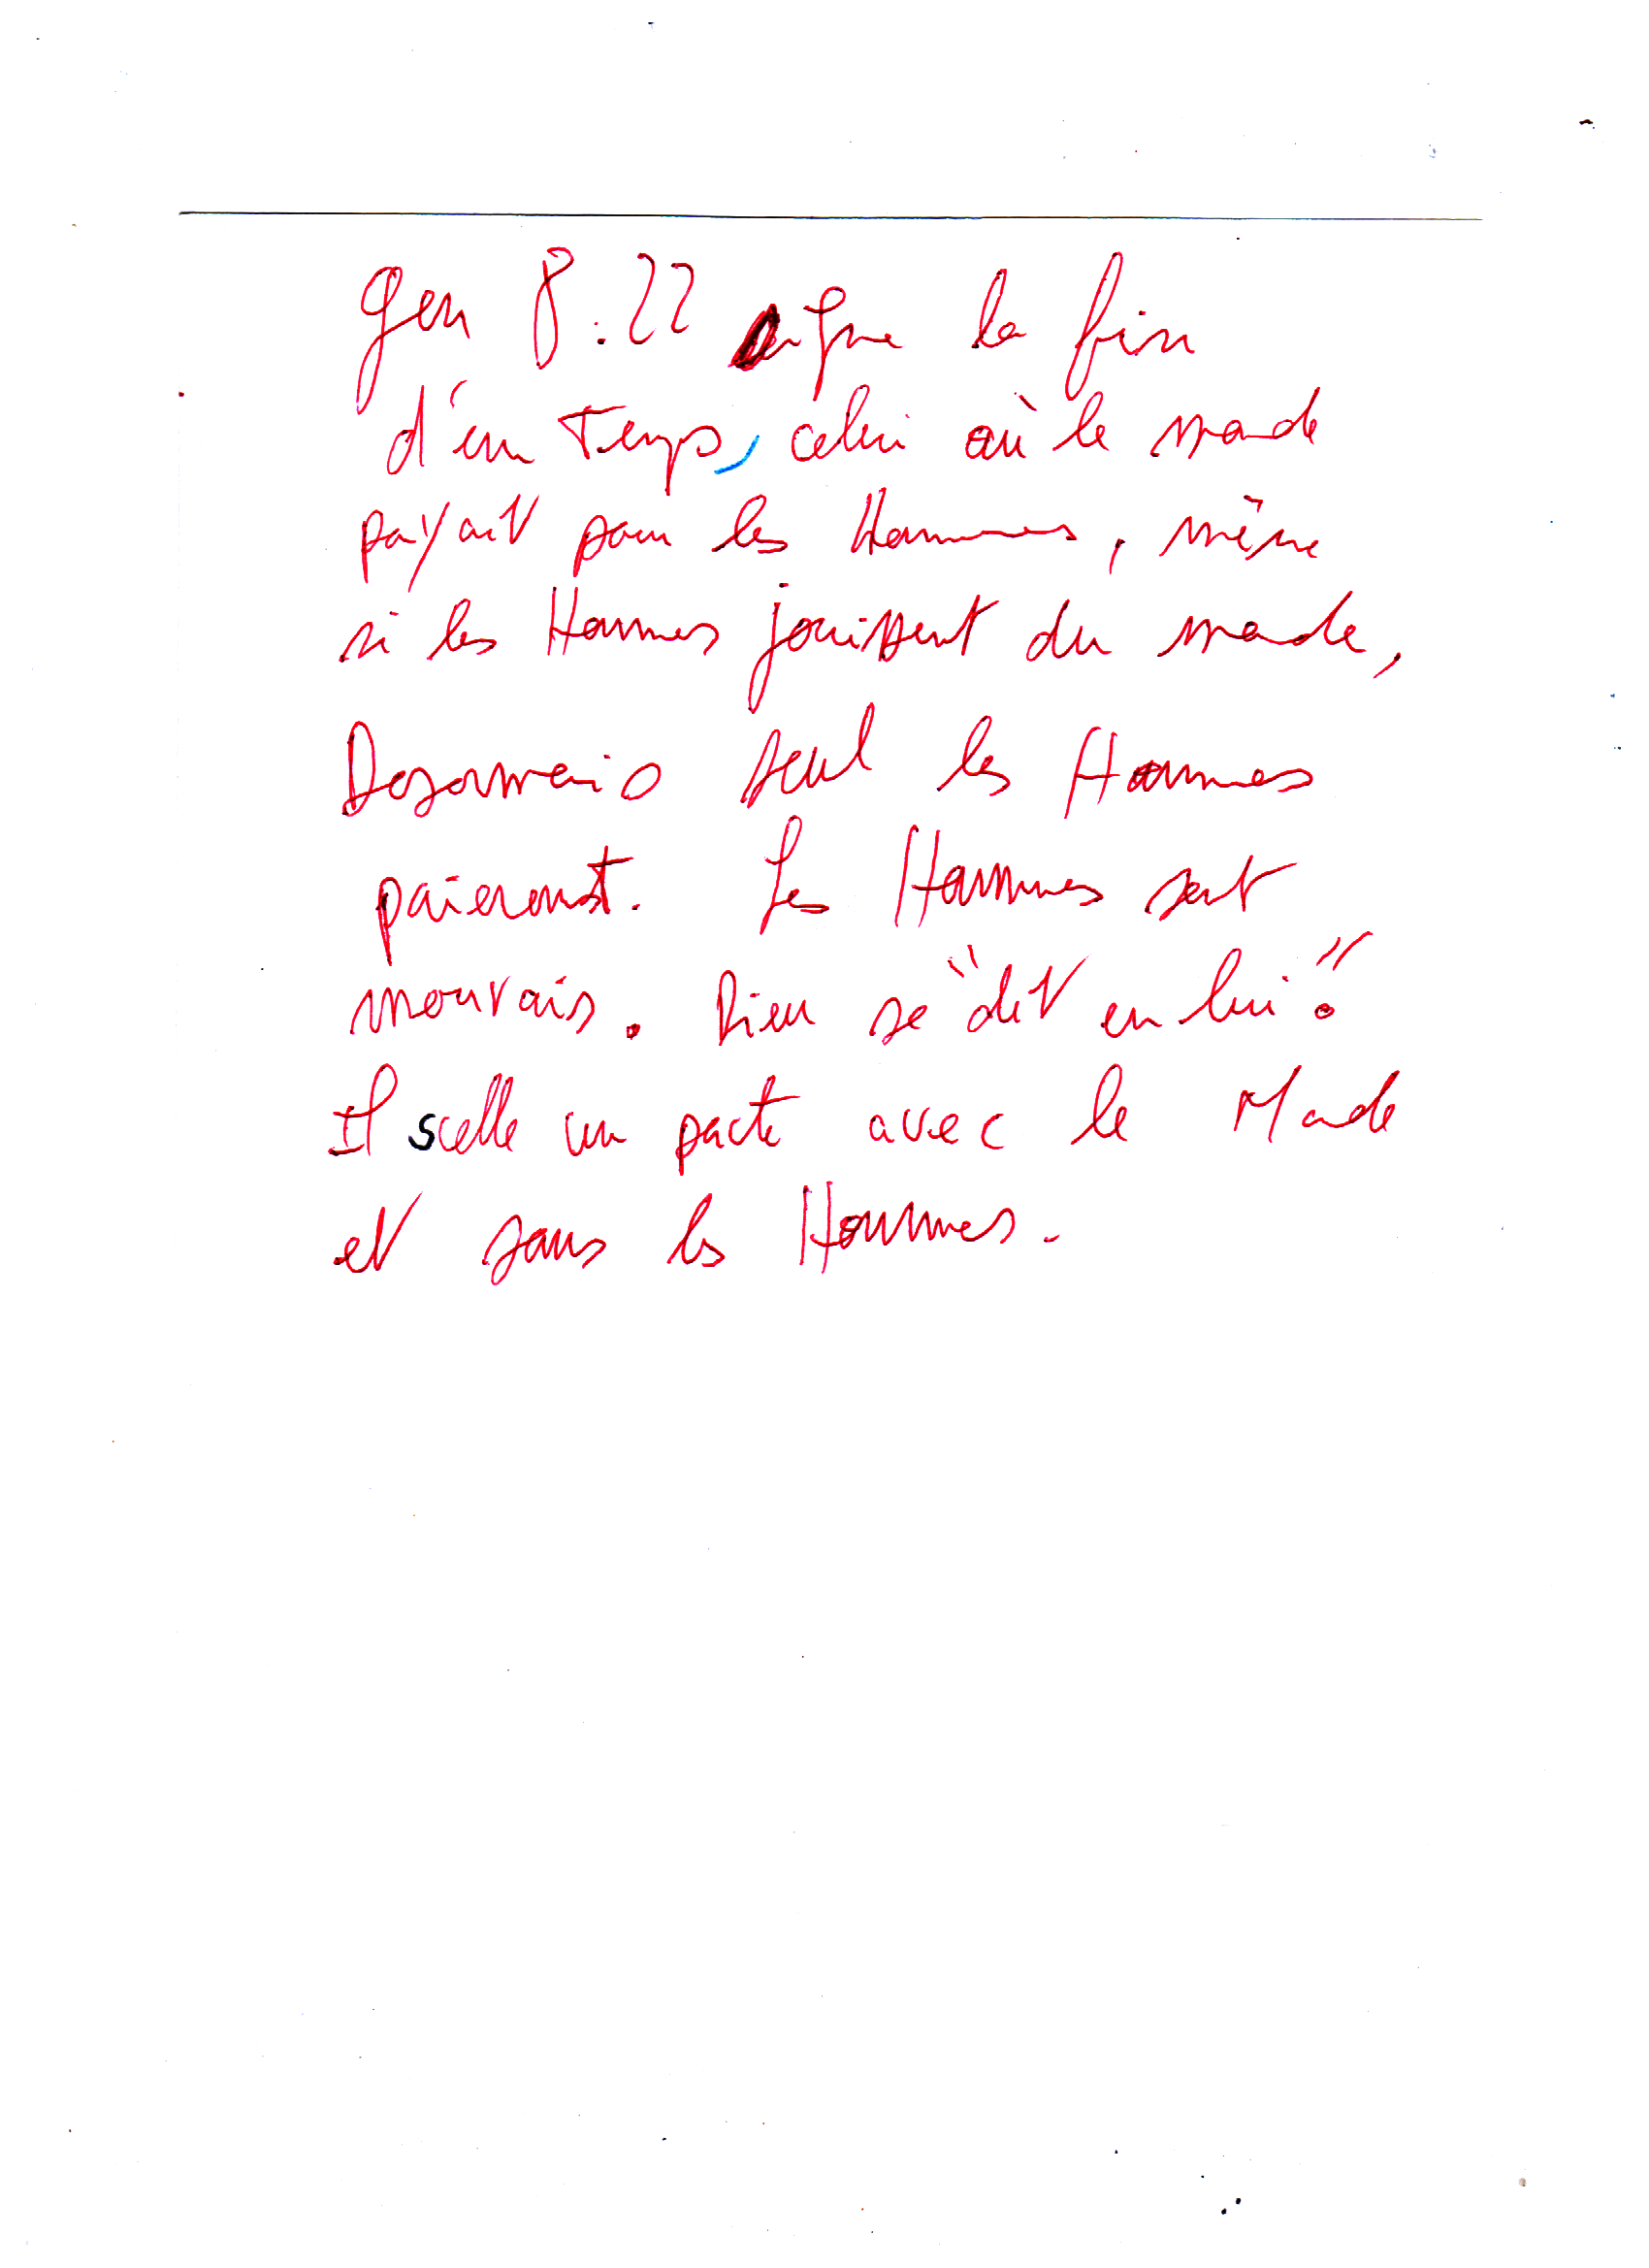 Gen 8:22 signe la fin
d'un Temps, celui où le monde
payait pour les Hommes, même
si les Hommes jouissent du monde,
Desormais seul les Hommes
paieront. Les Hommes sont
mauvais. Dieu se "dit en lui".
Il scelle un pacte avec le Monde
et sans les Hommes.